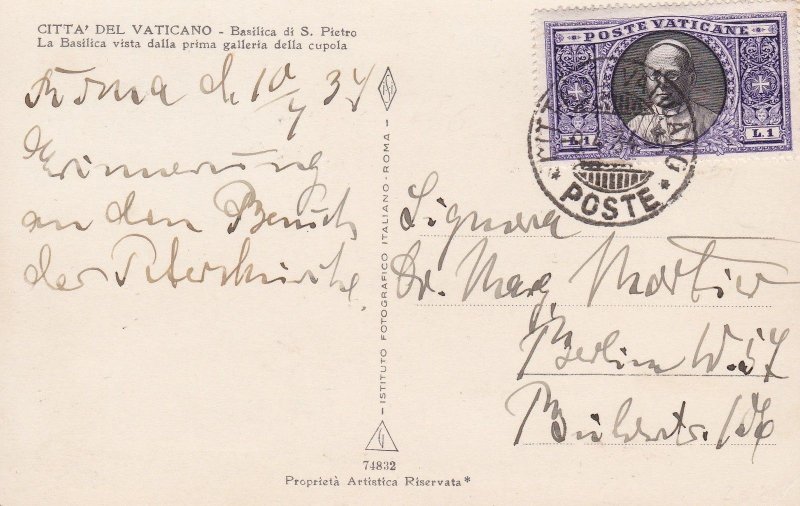 CITTA' DEL VATICANO - Basilica di S. Pietro
La Basilica vista dalla prima galleria della cupola
Roma d. 10/4 34
Erinnerung
an den Besuch
der Peterskirche.
—ISTITUTO FOTOGRAFICO ITALIANO-ROMA—
74832
Proprietà Artistica Riservata*
POSTE VATICANE
L.1 L.1
POSTE
Signora
Dr. Marg. Martier
Berlin W. 57
Bülowstr.